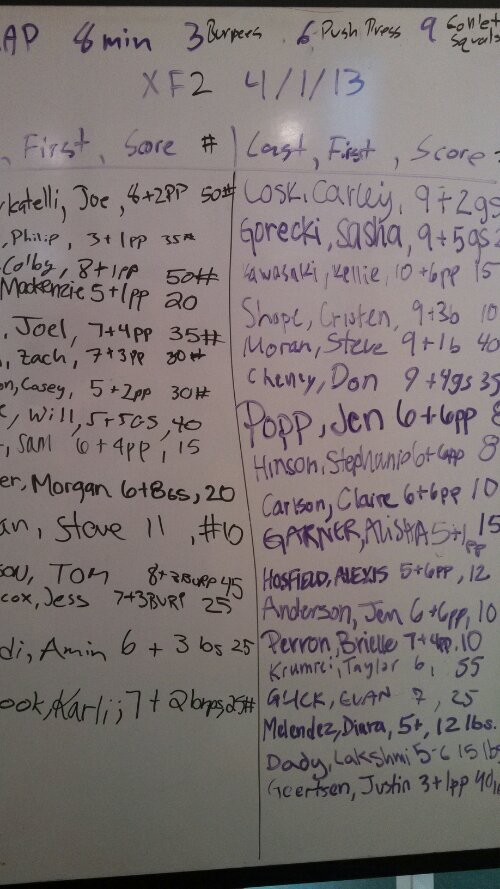 AP 8 min 3 Burpees 6 Push Press 9 Goblet Squats
XF2 4/1/13
, First, Score #
katelli, Joe, 8+2PP 50#
, Philip, 3+1pp 35#
Colby, 8+1pp 50#
Mackenzie 5+1pp 20
, Joel, 7+4pp 35#
, Zach, 7+3pp 30#
on, Casey, 5+2pp 30#
, Will, 5+5GS, 40
, Sam 6+4pp, 15
er, Morgan 6+8Gs, 20
an, Steve 11, #10
son, Tom 8+3BURP 45
cox, Jess 7+3BURP 25
di, Amin 6 + 3 bs 25
ook, Karli, 7+2 brps, 25#
Last, First, Score
Losk, Carley, 9+2gs
Gorecki, Sasha, 9+5gs 2
Kawasaki, Kellie, 10+6pp 15
Shope, Cristen, 9+3b 10
Moran, Steve 9+1b 40
Cheney, Don 9+4gs 35
POPP, Jen 6+6pp 8
Hinson, Stephanie 6+6pp 8
Carlson, Claire 6+6pp 10
GARNER, ALISHA 5+1pp 15
HOSFIELD, ALEXIS 5+6pp, 12
Anderson, Jen 6+6pp, 10
Perron, Brielle 7+4pp. 10
Krumrei, Taylor 6, 55
GLICK, EVAN 7, 25
Melendez, Diara, 5+, 12 lbs.
Dady, Lakshmi 5-6 15 lbs
Geertsen, Justin 3+1pp 40